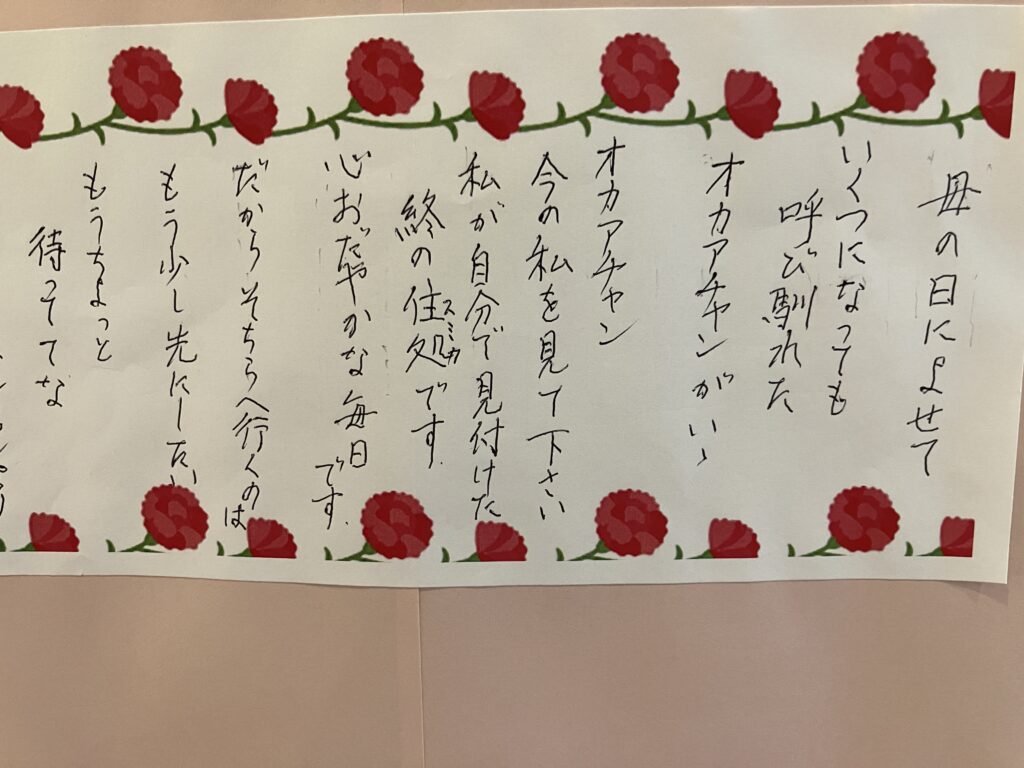 母の日によせて
いくつになっても
呼び馴れた
オカアチャンがいゝ
オカアチャン
今の私を見て下さい
私が自分で見付けた
終の住処スミカです.
心おだやかな毎日です.
だからそちらへ行くのは
もう少し先にしたい
もうちょっと
待っててな